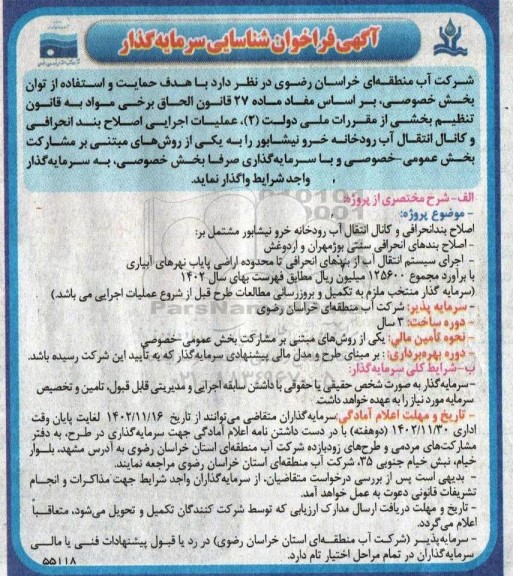 آگهی فراخوان شناسایی سرمایه‌گذار
شرکت آب منطقه‌ای خراسان رضوی در نظر دارد با هدف حمایت و استفاده از توان
بخش خصوصی، بر اساس مفاد ماده ۲۷ قانون الحاق برخی مواد به قانون
تنظیم بخشی از مقررات ملی دولت (۲)، عملیات اجرایی اصلاح بند انحرافی
و کانال انتقال آب رودخانه خرو نیشابور را به یکی از روش‌های مبتنی بر مشارکت
بخش عمومی-خصوصی و با سرمایه‌گذاری صرفا بخش خصوصی، به سرمایه‌گذار
واجد شرایط واگذار نماید.
الف- شرح مختصری از پروژه:
- موضوع پروژه:
اصلاح بندانحرافی و کانال انتقال آب رودخانه خرو نیشابور مشتمل بر:
- اصلاح بندهای انحرافی سنتی بوژمهران و اردوغش
- اجرای سیستم انتقال آب از بندهای انحرافی تا محدوده اراضی پایاب نهرهای آبیاری
با برآورد مجموع ۱۲۵۶۰۰ میلیون ریال مطابق فهرست بهای سال ۱۴۰۲
(سرمایه گذار منتخب ملزم به تکمیل و بروزرسانی مطالعات طرح قبل از شروع عملیات اجرایی می باشد.)
- سرمایه پذیر: شرکت آب منطقه‌ای خراسان رضوی
- دوره ساخت: ۳ سال
- نحوه تأمین مالی: یکی از روش‌های مبتنی بر مشارکت بخش عمومی -خصوصی
- دوره بهره‌برداری: : بر مبنای طرح و مدل مالی پیشنهادی سرمایه‌گذار که به تأیید این شرکت رسیده باشد.
ب- شرایط کلی سرمایه‌گذار:
-سرمایه‌گذار به صورت شخص حقیقی یا حقوقی با داشتن سابقه اجرایی و مدیریتی قابل قبول، تامین و تخصیص
سرمایه مورد نیاز را به عهده خواهد داشت.
- تاریخ و مهلت اعلام آمادگی: سرمایه‌گذاران متقاضی می‌توانند از تاریخ ۱۴۰۲/۱۱/۱۶ لغایت پایان وقت
اداری ۱۴۰۲/۱۱/۳۰ (دوهفته) با در دست داشتن نامه اعلام آمادگی جهت سرمایه‌گذاری در طرح، به دفتر
مشارکت‌های مردمی و طرح‌های زودبازده شرکت آب منطقه‌ای استان خراسان رضوی به آدرس مشهد، بلوار
خیام، نبش خیام جنوبی ۳۵، شرکت آب منطقه‌ای استان خراسان رضوی مراجعه نمایند.
- بدیهی است پس از بررسی درخواست متقاضیان، از سرمایه‌گذاران واجد شرایط جهت مذاکرات و انجام
تشریفات قانونی دعوت به عمل خواهد آمد.
- تاریخ و مهلت دریافت ارسال مدارک ارزیابی که توسط شرکت کنندگان تکمیل و تحویل می‌شود، متعاقباً
اعلام می‌گردد.
- سرمایه‌پذیر (شرکت آب منطقه‌ای استان خراسان رضوی) در رد یا قبول پیشنهادات فنی یا مالی
سرمایه‌گذاران در تمام مراحل اختیار تام دارد.
۵۵۱۱۸